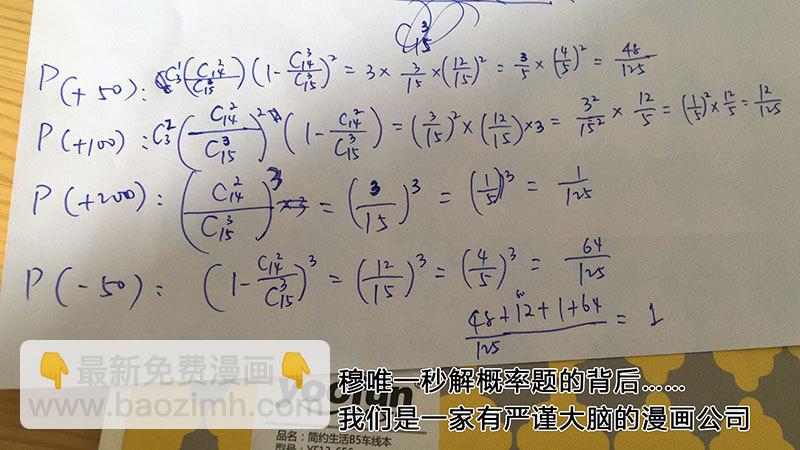 C₁₅³
P(+50): C₃¹(C₁₄²/C₁₅³)(1-C₁₄³/C₁₅³)² = 3 × 3/15 × (12/15)² = 3/5 × (4/5)² = 48/125
P(+100): C₃²(C₁₄²/C₁₅³)²(1-C₁₄²/C₁₅³) = (3/15)² × (12/15) × 3 = 3²/15² × 12/5 = (1/5)² × 12/5 = 12/125
P(+200): (C₁₄²/C₁₅³)³ = (3/15)³ = (1/5)³ = 1/125
P(-50): (1-C₁₄²/C₁₅³)³ = (12/15)³ = (4/5)³ = 64/125
48+12+1+64/125 = 1
👇最新免费漫画👇
www.baozimh.com
穆唯一秒解概率题的背后……
我们是一家有严谨大脑的漫画公司
品名：简约生活B5车线本
型号：